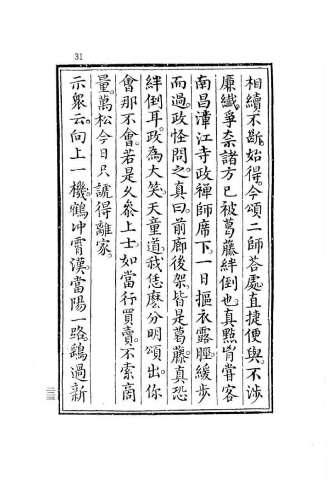 31
相續不斷。始得。今頌二師荅處。直捷便與。不涉
廉纖。爭奈諸方已被葛藤絆倒也。真點胷甞客
南昌漳江寺政禪師席下。一日摳衣露脛。緩步
而過。政怪問之。真曰。前廊後架。皆是葛藤。真恐
絆倒耳。政為大笑。天童道。我恁麽分明頌出。你
會那不會。若是久參上士。如當行買賣。不索商
量。萬松今日只 諕得離家。
示衆云。向上一機。鶴冲霄漢。當陽一路。鷂過新